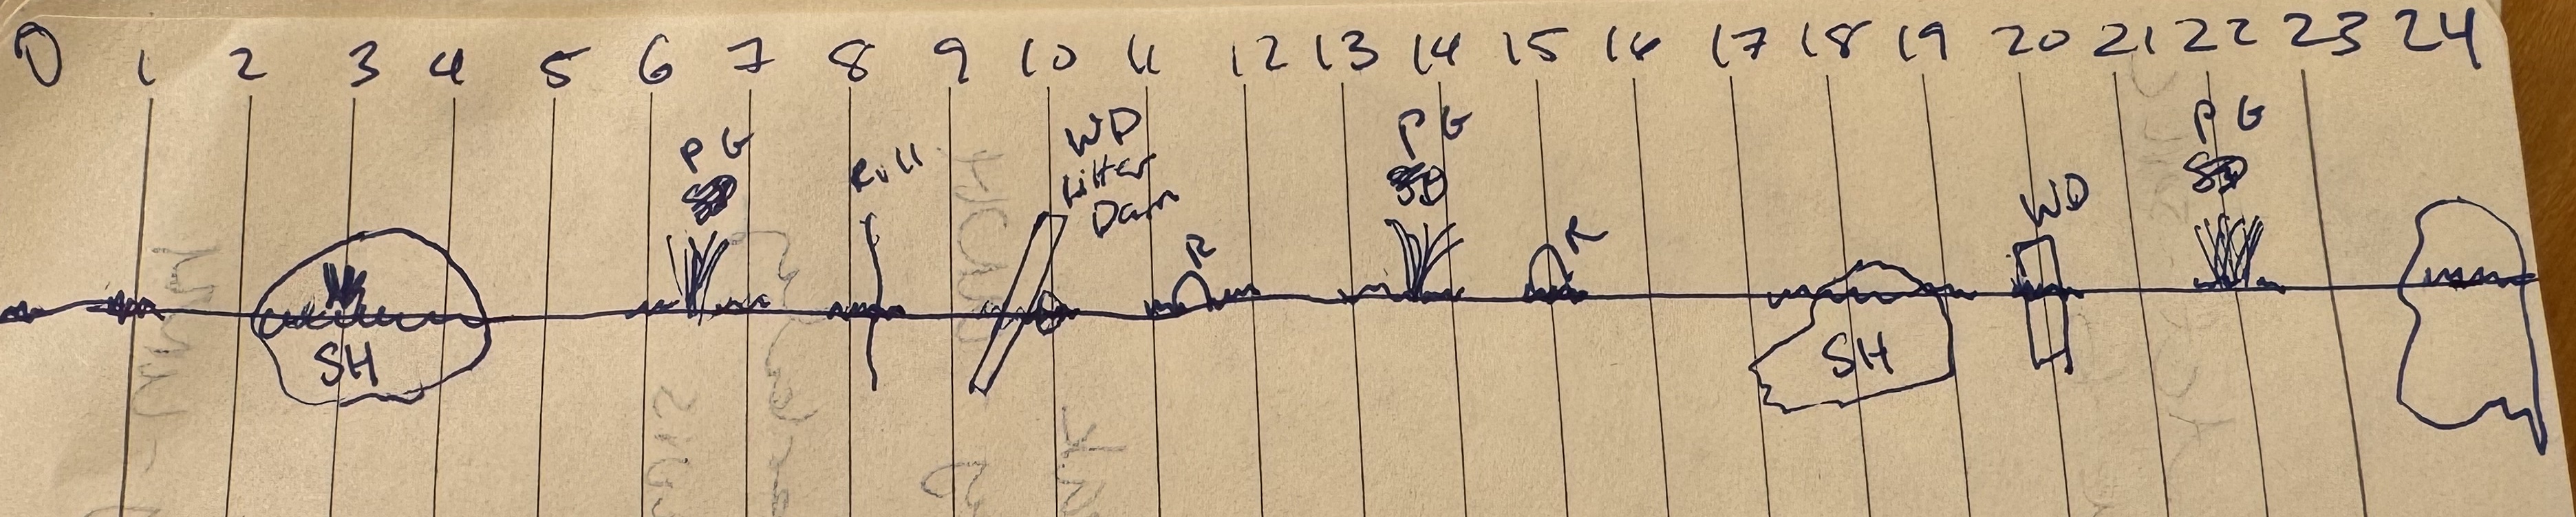 0 1 2 3 4 5 6 7 8 9 10 11 12 13 14 15 16 17 18 19 20 21 22 23 24
PG
Rill
WD
Litter
Dam
R
PG
R
WD
PG
SH
SH